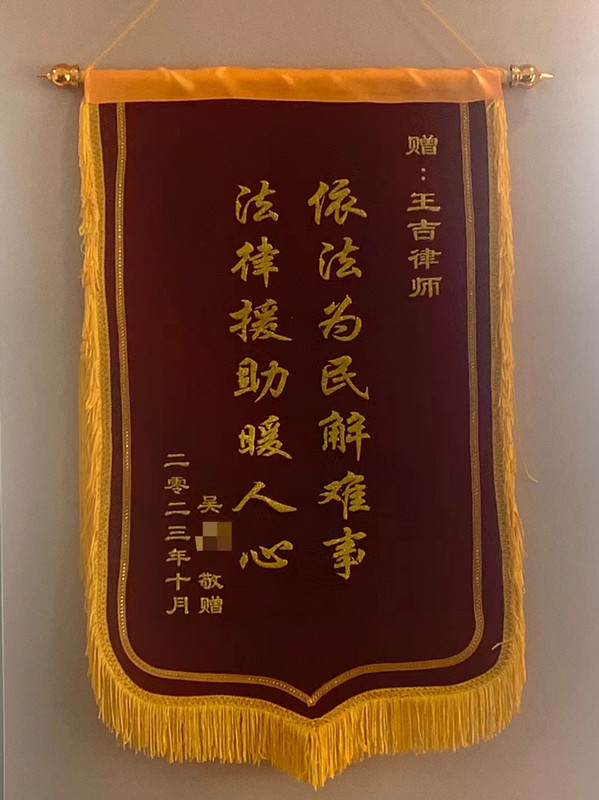 赠：王吉律师
依法为民解难事
法律援助暖人心
吴 敬赠
二零二三年十月